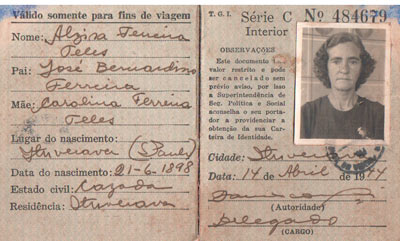 Válido somente para fins de viagem
Nome: Alzira Ferreira
Teles
Pai: José Bernardino
Ferreira
Mãe: Carolina Ferreira
Teles
Lugar do nascimento:
Ituverava (S. Paulo)
Data do nascimento: 21-6-1898
Estado civil: Cazada
Residência: Ituverava
T. G. I. Série C Nº 484679
Interior
OBSERVAÇÕES
Este documento é de
valor restrito e pode
ser cancelado sem
prévio aviso, por isso
a Superintendência de
Seg. Política e Social
aconselha o seu porta-
dor a providenciar a
obtenção da sua Car-
teira de Identidade.
Cidade: Ituverava
Data: 14 de Abril de 1944
(Autoridade)
Delegado
(CARGO)